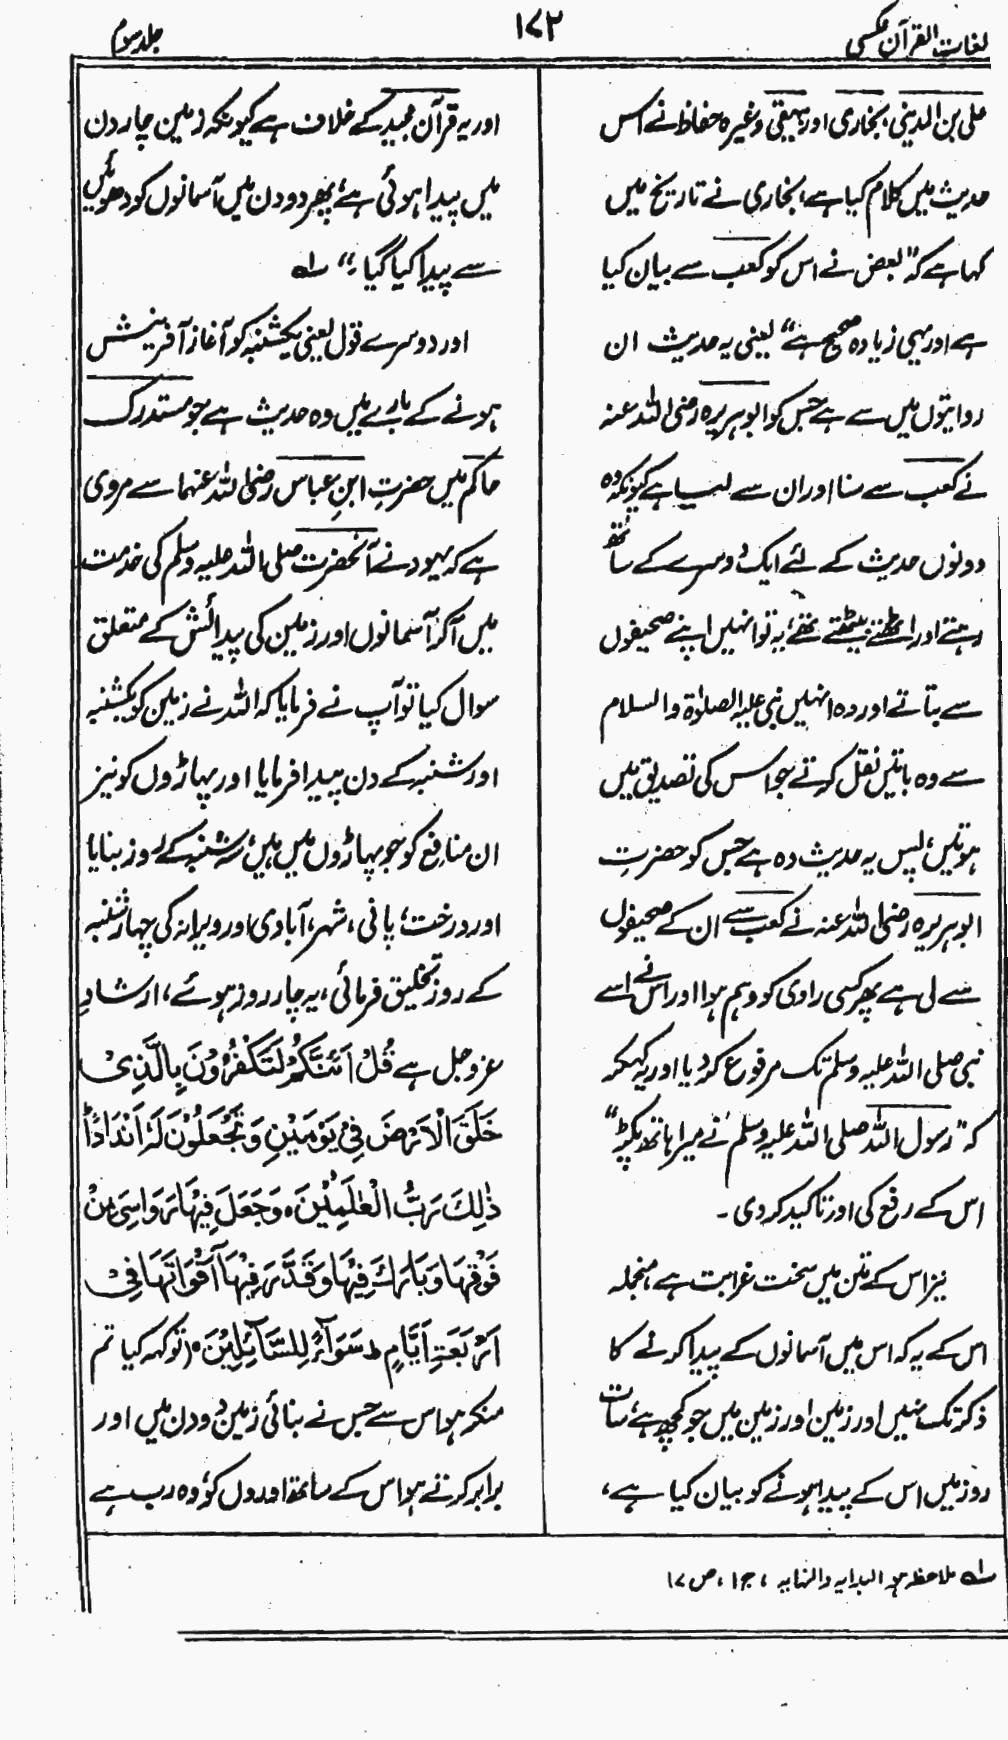 لغات القرآن عکسی
۱۷۲
جلد سوم
علی بن المدینی، بخاری اور بیہقی وغیرہ حفاظ نے اس
حدیث میں کلام کیا ہے، بخاری نے تاریخ میں
کہا ہے کہ "بعض نے اس کو کعب سے بیان کیا
ہے اور یہی زیادہ صحیح ہے" یعنی یہ حدیث ان
روایتوں میں سے ہے جس کو ابوہریرہ رضی اللہ عنہ
نے کعب سے سنا اور ان سے لیا ہے کیونکہ وہ
دونوں حدیث کے لئے ایک دوسرے کے ساتھ
رہتے اور اٹھتے بیٹھتے تھے، یہ تو انہیں اپنے صحیفوں
سے بتاتے اور وہ انہیں نبی علیہ الصلوٰۃ والسلام
سے وہ باتیں نقل کرتے جو اس کی تصدیق میں
ہوتیں، پس یہ حدیث وہ ہے جس کو حضرتِ
ابوہریرہ رضی اللہ عنہ نے کعب سے ان کے صحیفوں
سے لی ہے پھر کسی راوی کو وہم ہوا اور اس نے اسے
نبی صلی اللہ علیہ وسلم تک مرفوع کر دیا اور یہ کہہ کر
کہ "رسول اللہ صلی اللہ علیہ وسلم نے میرا ہاتھ پکڑ"
اس کے رفع کی اور تاکید کر دی ۔
نیز اس کے متن میں سخت غرابت ہے، منجملہ
اس کے یہ کہ اس میں آسمانوں کے پیدا کرنے کا
ذکر تک نہیں اور زمین اور زمین میں جو کچھ ہے، سات
روز میں اس کے پیدا ہونے کو بیان کیا ہے،
اور یہ قرآن مجید کے خلاف ہے کیونکہ زمین چار دن
میں پیدا ہوئی ہے، پھر دو دن میں آسمانوں کو دھوئیں
سے پیدا کیا گیا۔" لہ
اور دوسرے قول یعنی یکشنبہ کو آغاز آفرینش
ہونے کے بارے میں وہ حدیث ہے جو مستدرک
حاکم میں حضرتِ ابنِ عباس رضی اللہ عنہما سے مروی
ہے کہ یہود نے آنحضرت صلی اللہ علیہ وسلم کی خدمت
میں آکر آسمانوں اور زمین کی پیدائش کے متعلق
سوال کیا تو آپ نے فرمایا کہ اللہ نے زمین کو یکشنبہ
اور شنبہ کے دن پیدا فرمایا اور پہاڑوں کو نیز
ان منافع کو جو پہاڑوں میں ہیں، سہ شنبہ کے روز بنایا
اور درخت، پانی، شہر، آبادی اور ویرانہ کی چہارشنبہ
کے روز تخلیق فرمائی، یہ چار روز ہوئے، ارشادِ
عز و جل ہے قُلْ اَئِنَّکُمْ لَتَکْفُرُوْنَ بِالَّذِیْ
خَلَقَ الْاَرْضَ فِیْ یَوْمَیْنِ وَ تَجْعَلُوْنَ لَہٗ اَنْدَادًا ط
ذٰلِکَ رَبُّ الْعٰلَمِیْنَ ہ وَجَعَلَ فِیْہَا رَوَاسِیَ مِنْ
فَوْقِہَا وَبَارَکَ فِیْہَا وَ قَدَّرَ فِیْہَا اَقْوَاتَہَا فِیْ
اَرْبَعَۃِ اَیَّامٍ ط سَوَآءً لِّلسَّآئِلِیْنَ ہ (تو کہہ کیا تم
منکر ہو اس سے جس نے بنائی زمین دو دن میں اور
برابر کرتے ہو اس کے ساتھ اوروں کو، وہ رب ہے
لہ ملاحظہ ہو البدایہ والنہایہ ، ج۱، ص ۱۷